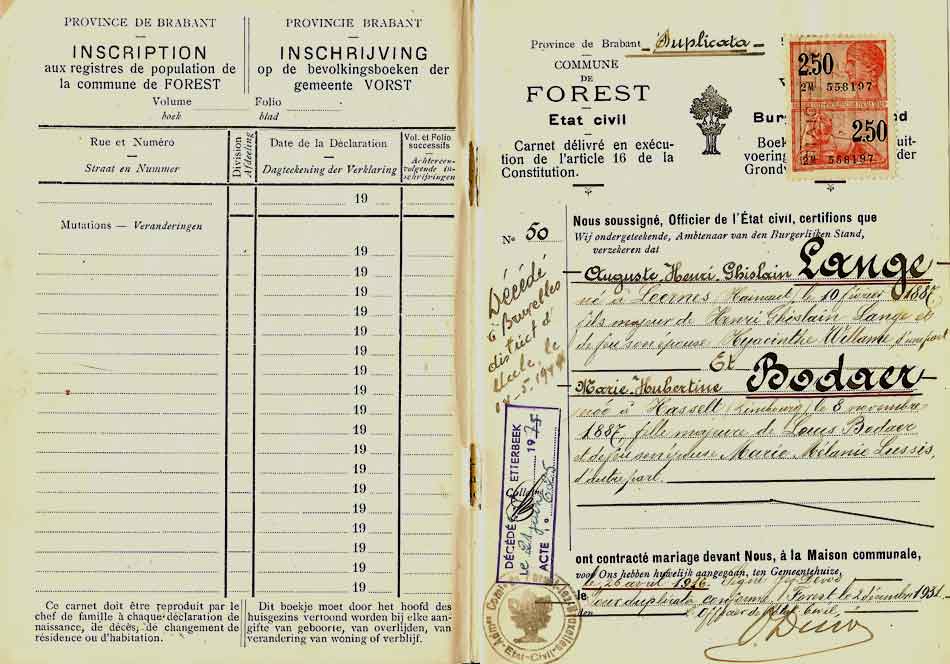 PROVINCE DE BRABANT
INSCRIPTION
aux registres de population de
la commune de FOREST
PROVINCIE BRABANT
INSCHRIJVING
op de bevolkingsboeken der
gemeente VORST
Volume
boek
Folio
blad
Rue et Numéro
Straat en Nummer
Division
Afdeeling
Date de la Déclaration
Dagteekening der Verklaring
Vol. et Folio
successifs
Achtereen-
volgende in-
schrijvingen
19
Mutations — Veranderingen
19
19
19
19
19
19
19
19
19
19
19
19
19
19
19
19
19
Ce carnet doit être reproduit par le
chef de famille à chaque déclaration de
naissance, de décès, de changement de
résidence ou d'habitation.
Dit boekje moet door het hoofd des
huisgezins vertoond worden bij elke aan-
gifte van geboorte, van overlijden, van
verandering van woning of verblijf.
Province de Brabant
Duplicata
COMMUNE
DE
FOREST
Etat civil
Carnet délivré en exécu-
tion de l'article 16 de la
Constitution.
2.50
2M 556197
2.50
2M 556197
Bur
nd
Boek
uit-
voering
der
Grondw
No 50
Nous soussigné, Officier de l'État civil, certifions que
Wij ondergeteekende, Ambtenaar van den Burgerlijken Stand,
verzekeren dat
Auguste Henri Ghislain Lange
né à Leernes (Hainaut), le 10 février 1887,
fils majeur de Henri Ghislain Lange et
de feu son épouse Hyacinthe Willame, d'une part
Et
Marie Hubertine Bodaer
née à Hasselt (Limbourg), le 8 novembre
1887, fille majeure de Louis Bodaer
et de feu son épouse Marie Mélanie Lussis,
d'autre part.
Décédé
à Bruxelles
district d'
Uccle, le
DÉCÉDÉ
ETTERBEEK
LE 21 juin 19
ACTE No 625
ont contracté mariage devant Nous, à la Maison communale,
voor Ons hebben huwelijk aangegaan, ten Gemeentehuize,
le 26 avril
le
den
Pour duplicata conforme, Forest le 2 décembre 1931.
Officier de l'Etat Civil,
Etat-Civil